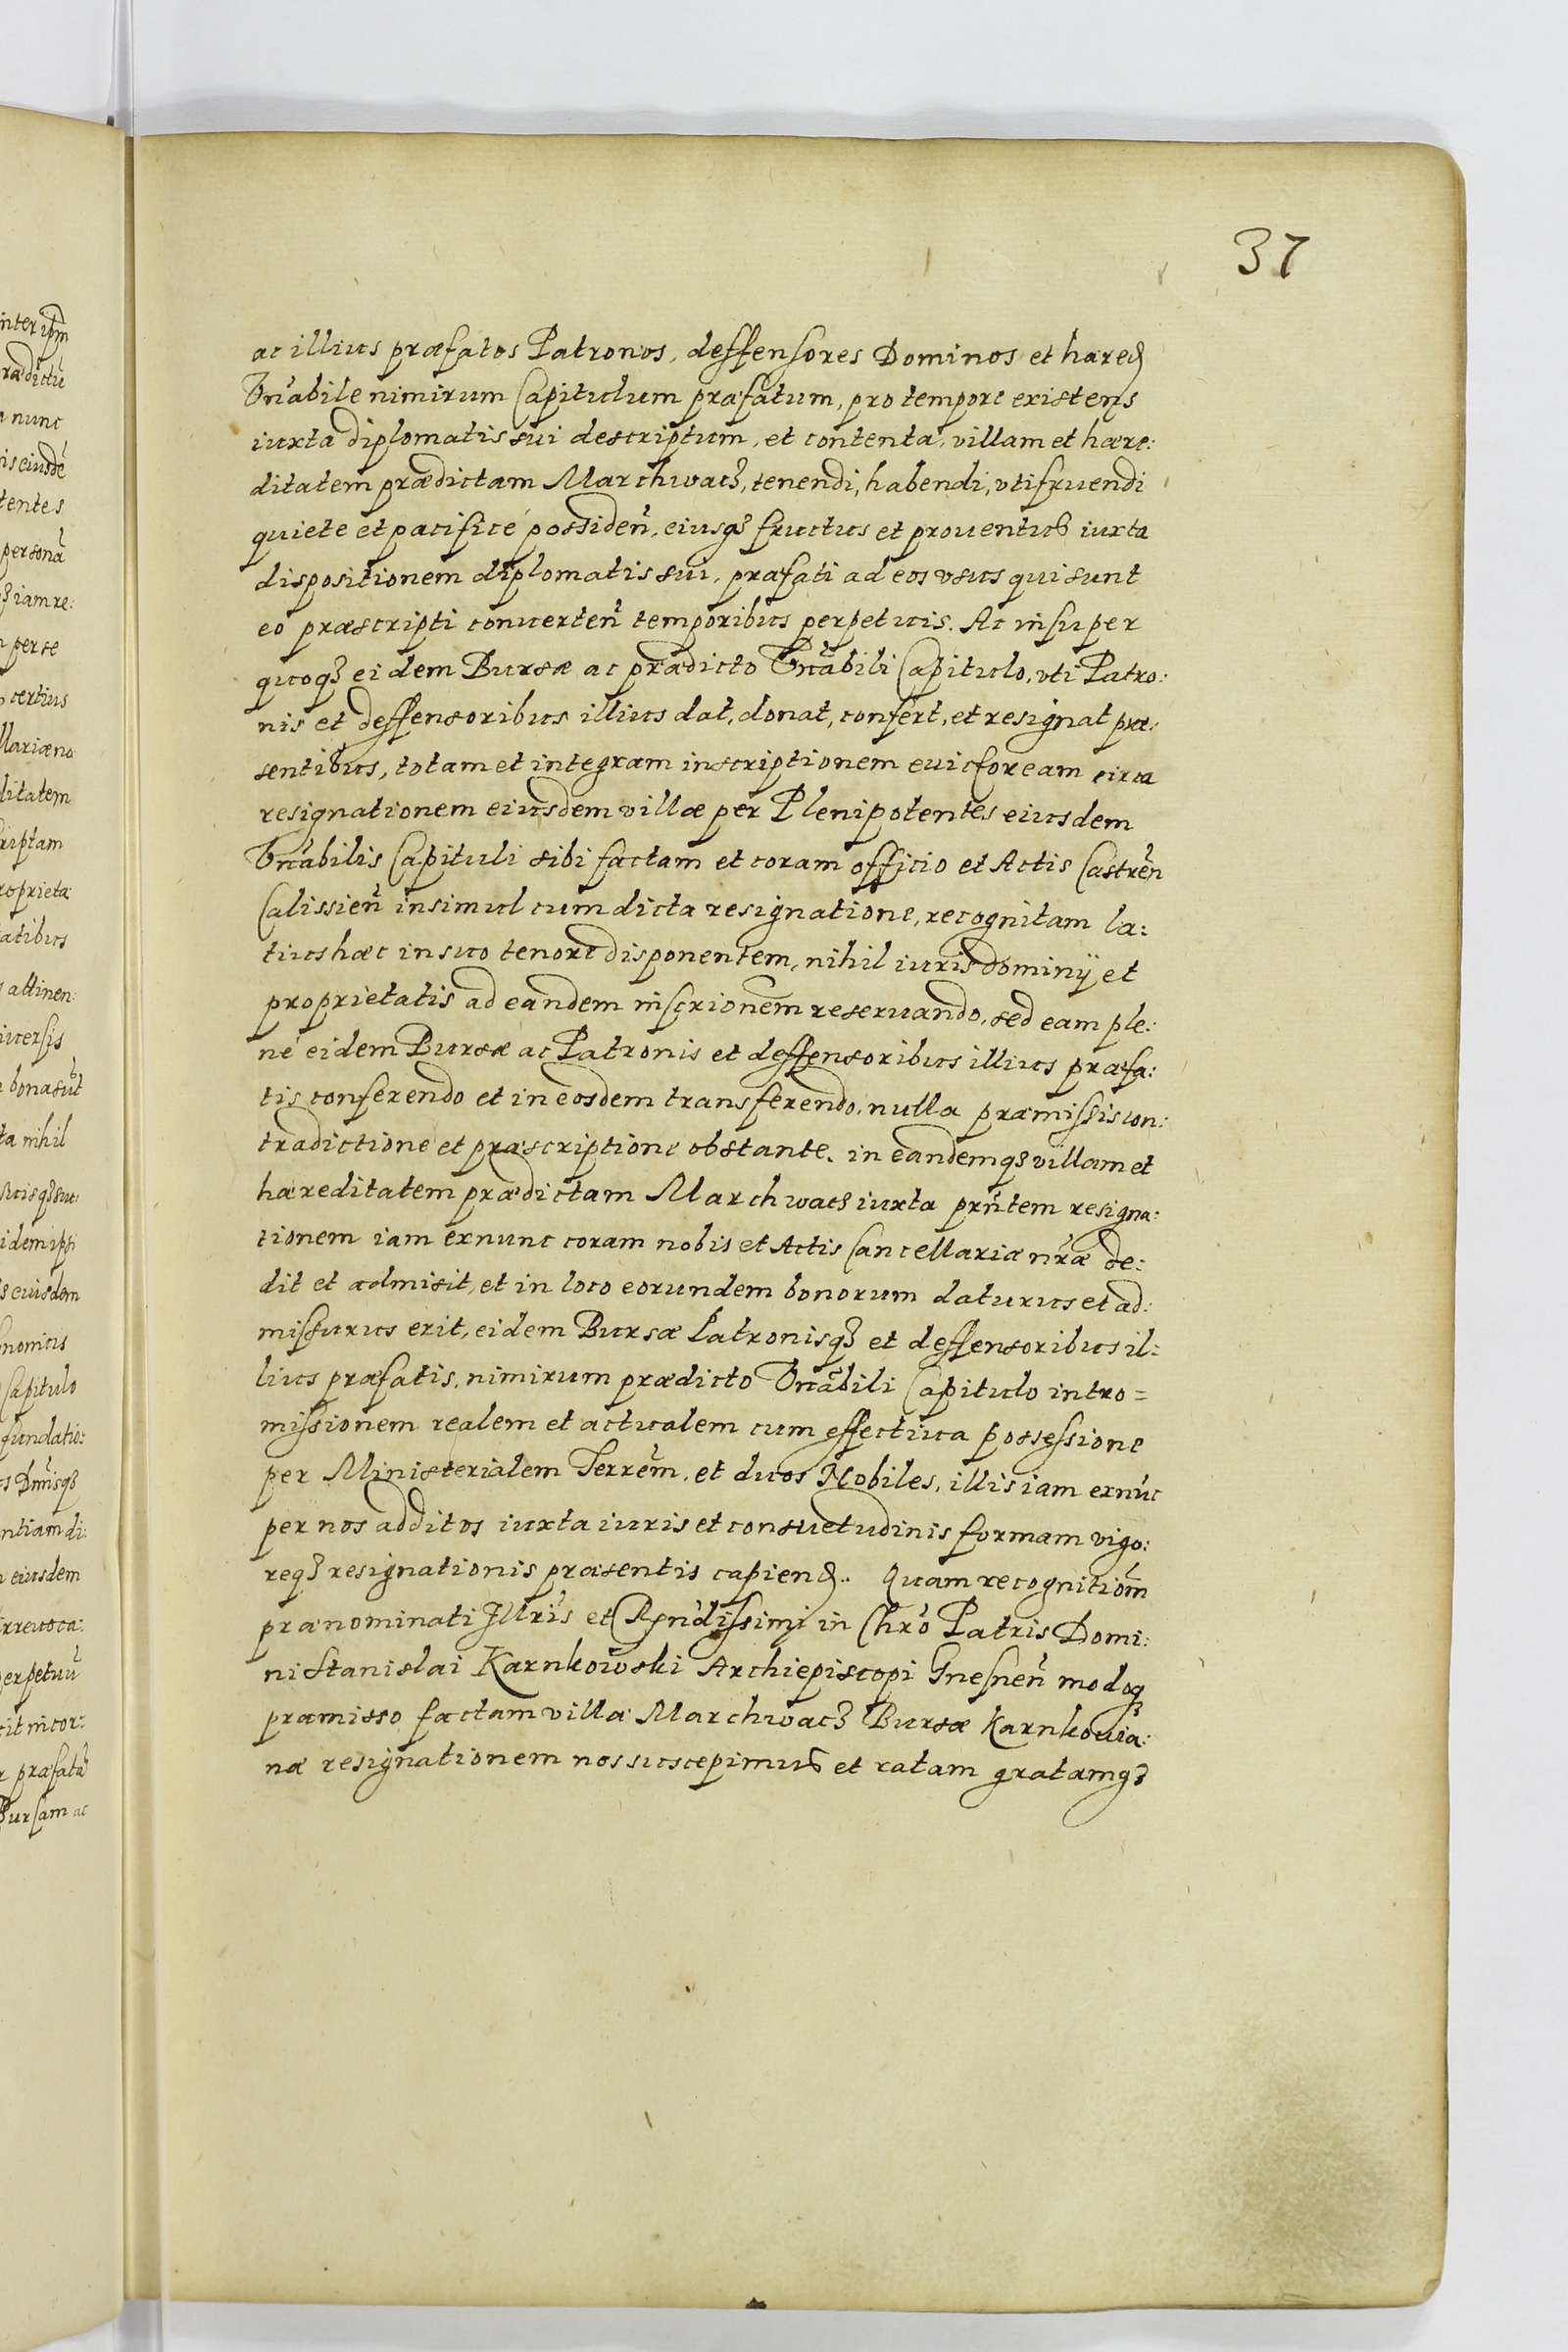 37
ac illius præfatos Patronos, deffensores Dominos et hæred
Vnãbile nimirum Capitulum præfatum, pro tempore existens
iuxta diplomatis sui descriptum, et contenta, villam et hære:
ditatem prædictam Marchwacz, tenendi, habendi, vtifruendi
quiete et pacificé possideñ, eiusq3 fructus et prouentus iuxta
dispositionem diplomatis sui, præfati ad eos vsus qui sunt
eo præscripti conuerteñ temporibus perpetuis. Ac insuper
quoq3 eidem Bursæ ac prædicto Vnãbili Capitulo, vti Patro:
nis et deffensoribus illius dat, donat, confert, et resignat præ:
sentibus, totam et integram inscriptionem euictoream circa
resignationem eiusdem villæ per Plenipotentes eiusdem
Vnãbilis Capituli sibi factam et coram officio et Actis Castreñ
Calissieñ insimul cum dicta resignatione, recognitam la:
tius hæc in suo tenore disponentem, nihil iuris dominÿ et
proprietatis ad eandem inscrionem reseruando, sed eam ple:
né eidem Bursæ ac Patronis et deffensoribus illius præfa:
tis conferendo et in eosdem transferendo, nulla præmissis con:
tradictione et præscriptione obstante, in eandemq3 villam et
hæreditatem prædictam Marchwacz iuxta prñtem resigna:
tionem iam exnunc coram nobis et Actis Cancellariæ nræ de:
dit et admisit, et in loco eorundem bonorum daturus et ad:
missurus erit, eidem Bursæ Patronisq3 et deffensoribus il:
lius præfatis, nimirum prædicto Vnãbili Capitulo intro=
missionem realem et actualem cum effectiua possessione
per Ministerialem Terrem̃, et duos Nobiles, illis iam exnũc
per nos additos iuxta iuris et consuetudinis formam vigo:
req3 resignationis præsentis capiend. Quam recognitiom̃
prænominati Jllris et Rṽndissimi in Chrõ Patris Domi:
ni Stanislai Karnkowski Archiepiscopi Gnesneñ modoq
præmisso factam villæ Marchwacz Bursæ Karnkouia:
næ resignationem nos suscepimus et ratam gratamq3